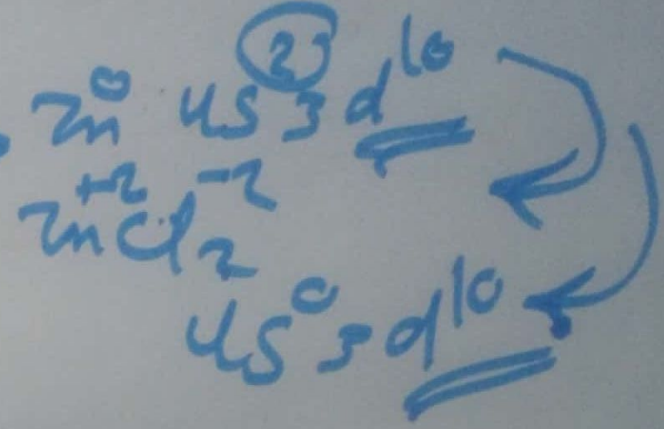 Zn⁰ 4s² 3d¹⁰
Zn⁺² Cl₂⁻²
4s⁰ 3d¹⁰